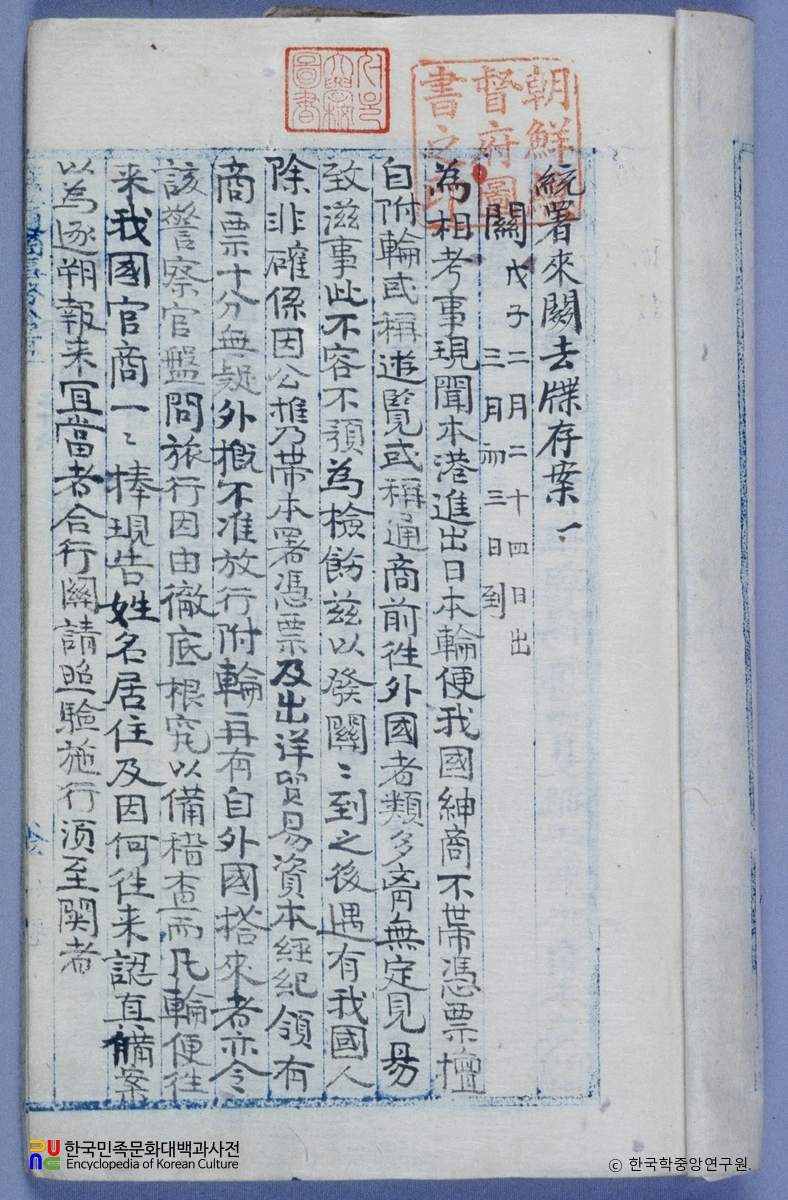 朝鮮總督府圖書之印
統署來關去牒存案一
關 戊子二月二十四日出
三月初三日到
為相考事現聞本港進出日本輪便我國紳商不帶憑票擅
自附輪或稱遊覽或稱通商前往外國者類多齎無定見易
致滋事此不容不預為檢飭茲以發關關到之後遇有我國人
除非確係因公推乃帶本署憑票及出洋貿易資本經紀領有
商票十分無疑外概不准放行附輪再有自外國搭來者亦令
該警察官盤問旅行因由徹底根究以備稽查而凡輪便往
来我國官商一一捧現告姓名居住及因何往来認真備案
以為逐朔報来宜當者合行關請照驗施行須至関者
한국민족문화대백과사전
Encyclopedia of Korean Culture
© 한국학중앙연구원.